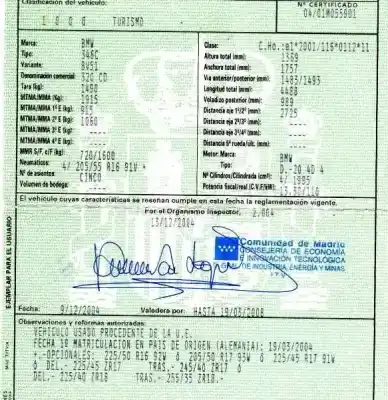 Clasificación del vehículo:
Nº CERTIFICADO
04/01M055901
1 0 0 0 TURISMO
Marca: BMW
Tipo: 346C
Variante: BV51
Denominación comercial: 320 CD
Tara (kg): 1490
MTMA/MMA (Kg): 1915
MTMA/MMA 1º E (kg): 915
MTMA/MMA 2º E (kg): 1060
MTMA/MMA 3º E (kg): ----
MTMA/MMA 4º E (kg): ----
MMR S/F, c/F (kg): 720/1600
Neumaticos: 4/ 205/55 R16 91V
Nº de asientos: CINCO
Volumen de bodega: ----
Clase: C.Ho.:e1*2001/116*0112*11
Altura total (mm): 1369
Anchura total (mm): 1757
Vía anterior/posterior (mm): 1483/1493
Longitud total (mm): 4488
Voladizo posterior (mm): 989
Distancia eje 1º/2º (mm): 2725
Distancia eje 2º/3º (mm): ----
Distancia eje 3º/4º (mm): ----
Distancia 5ª rueda/últ. (mm): ----
Motor: Marca: BMW
Tipo: D- 20 4D 4
Nº Cilindros/Cilindrada (cm³): 4/ 1995
Potencia fiscal/real (C.V.F/kW): 13,30/110
El vehículo cuyas características se reseñan cumple en esta fecha la reglamentación vigente.
Por el Organismo Inspector, 2.064
13/12/2004
Comunidad de Madrid
CONSEJERIA DE ECONOMIA
E INNOVACION TECNOLOGICA
DE INDUSTRIA, ENERGIA Y MINAS
EJEMPLAR PARA EL USUARIO
Fecha: 9/12/2004 Valedera por: HASTA 19/03/2008
Observaciones y reformas autorizadas:
VEHICULO USADO PROCEDENTE DE LA U.E.
FECHA 1ª MATRICULACION EN PAIS DE ORIGEN (ALEMANIA): 19/03/2004
+.-OPCIONALES: 225/50 R16 92W ó 205/50 R17 93W ó 225/45 R17 91W
ó DEL.- 225/45 ZR17 TRAS.- 245/40 ZR17 ó
DEL.- 225/40 ZR18 TRAS.- 255/35 ZR18.-